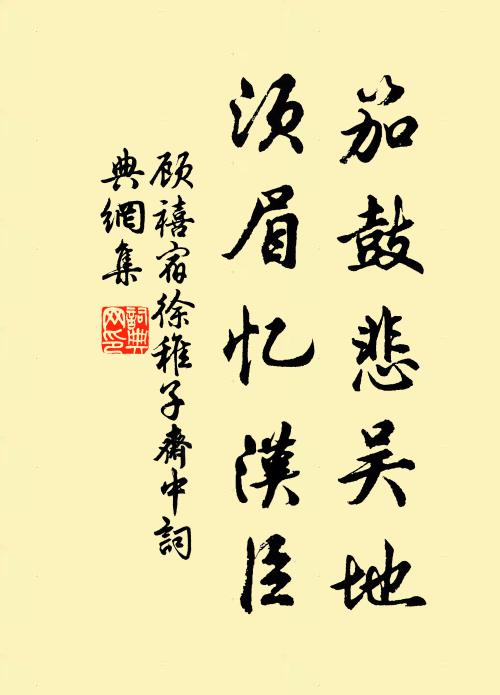 笳鼓悲吴地
须眉忆汉臣
顾禧宿徐稚子斋中词
典網集
詞典
网印